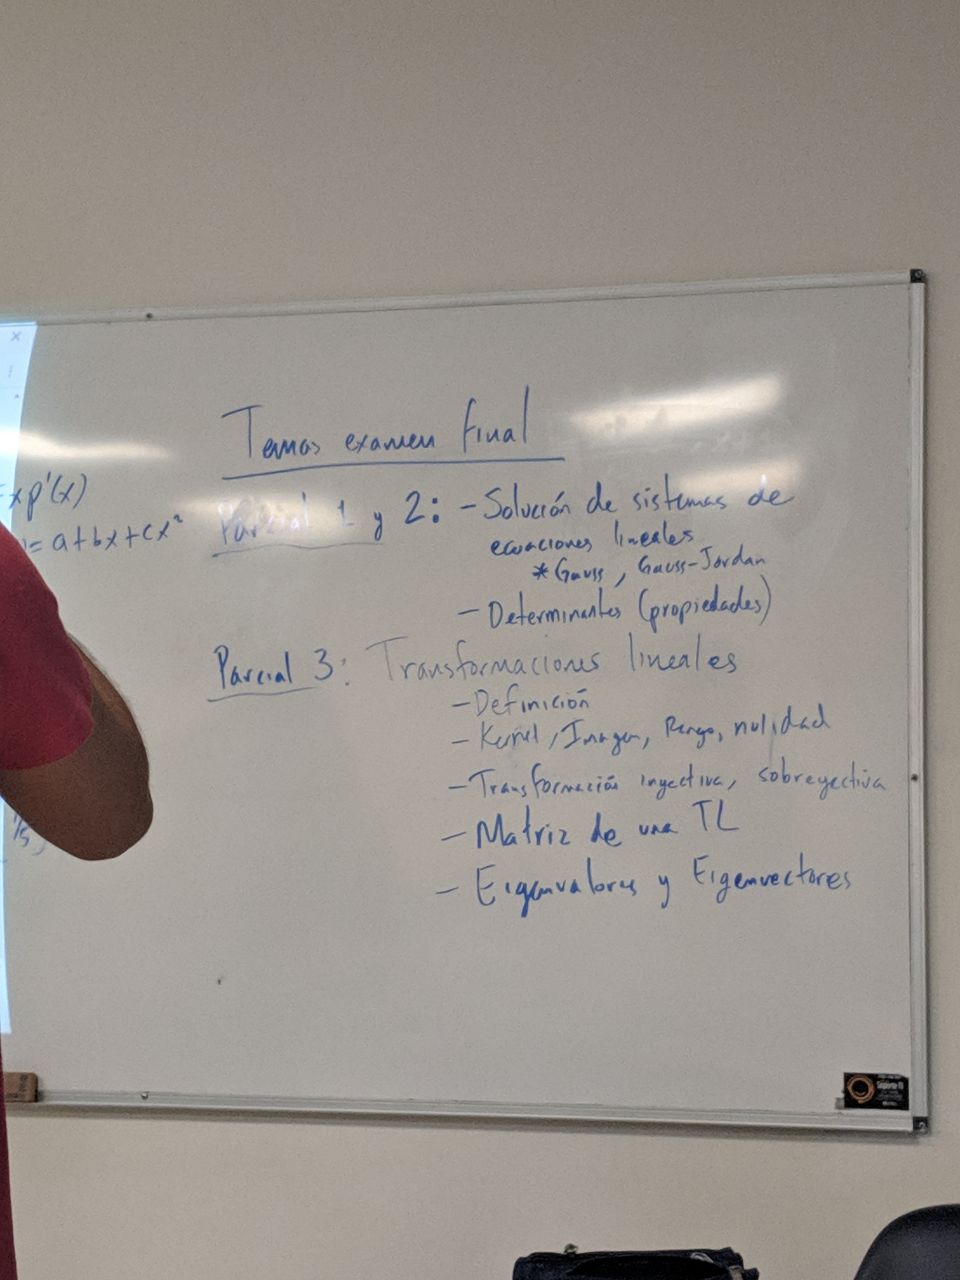 Temas examen final
xp'(x)
= a+bx+cx²
Parcial 1 y 2: - Solución de sistemas de
ecuaciones lineales
* Gauss, Gauss-Jordan
- Determinantes (propiedades)
Parcial 3: Transformaciones lineales
- Definición
- Kernel, Imagen, Rango, nulidad
- Transformación inyectiva, sobreyectiva
- Matriz de una TL
- Eigenvalores y Eigenvectores
Soporte TI